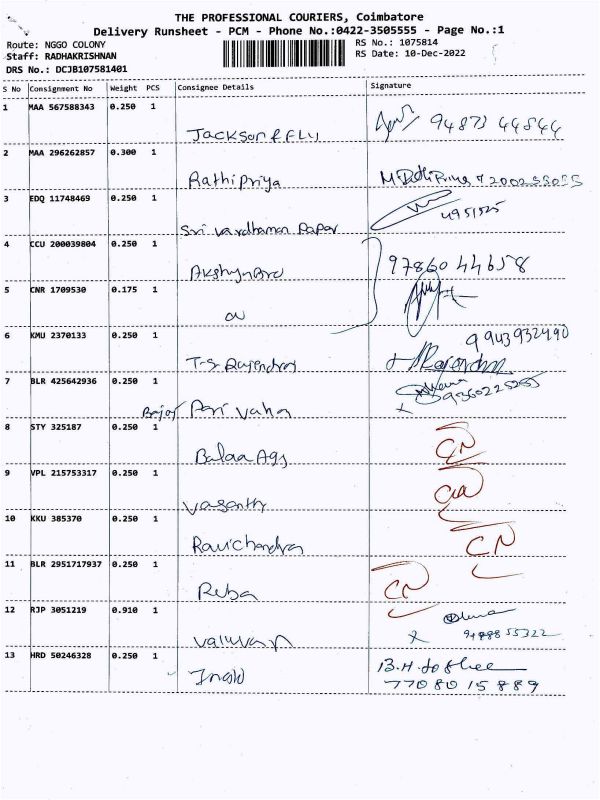 THE PROFESSIONAL COURIERS, Coimbatore
Delivery Runsheet - PCM - Phone No.:0422-3505555 - Page No.:1
Route: NGGO COLONY
RS No.: 1075814
Staff: RADHAKRISHNAN
RS Date: 10-Dec-2022
DRS No.: DCJB107581401
S No Consignment No Weight PCS Consignee Details Signature
1 MAA 567588343 0.250 1
94873 44844
Jackson & FLU
2 MAA 296262857 0.300 1
Rathipriya
3 EDQ 11748469 0.250 1
Sri Vardhaman Paper
4951525
4 CCU 200039804 0.250 1
97860 44658
5 CNR 1709530 0.175 1
6 KMU 2370133 0.250 1
9943932490
T-S Rajendran
7 BLR 425642936 0.250 1
9360225255
Bajaj Pari Vaha
8 STY 325187 0.250 1
CN
Balaa Ags
9 VPL 215753317 0.250 1
CN
Vasanthy
10 KKU 385370 0.250 1
CN
Ravichandra
11 BLR 2951717937 0.250 1
CN
Reba
12 RJP 3051219 0.910 1
9488855322
Valuvan
13 HRD 50246328 0.250 1
7708015889